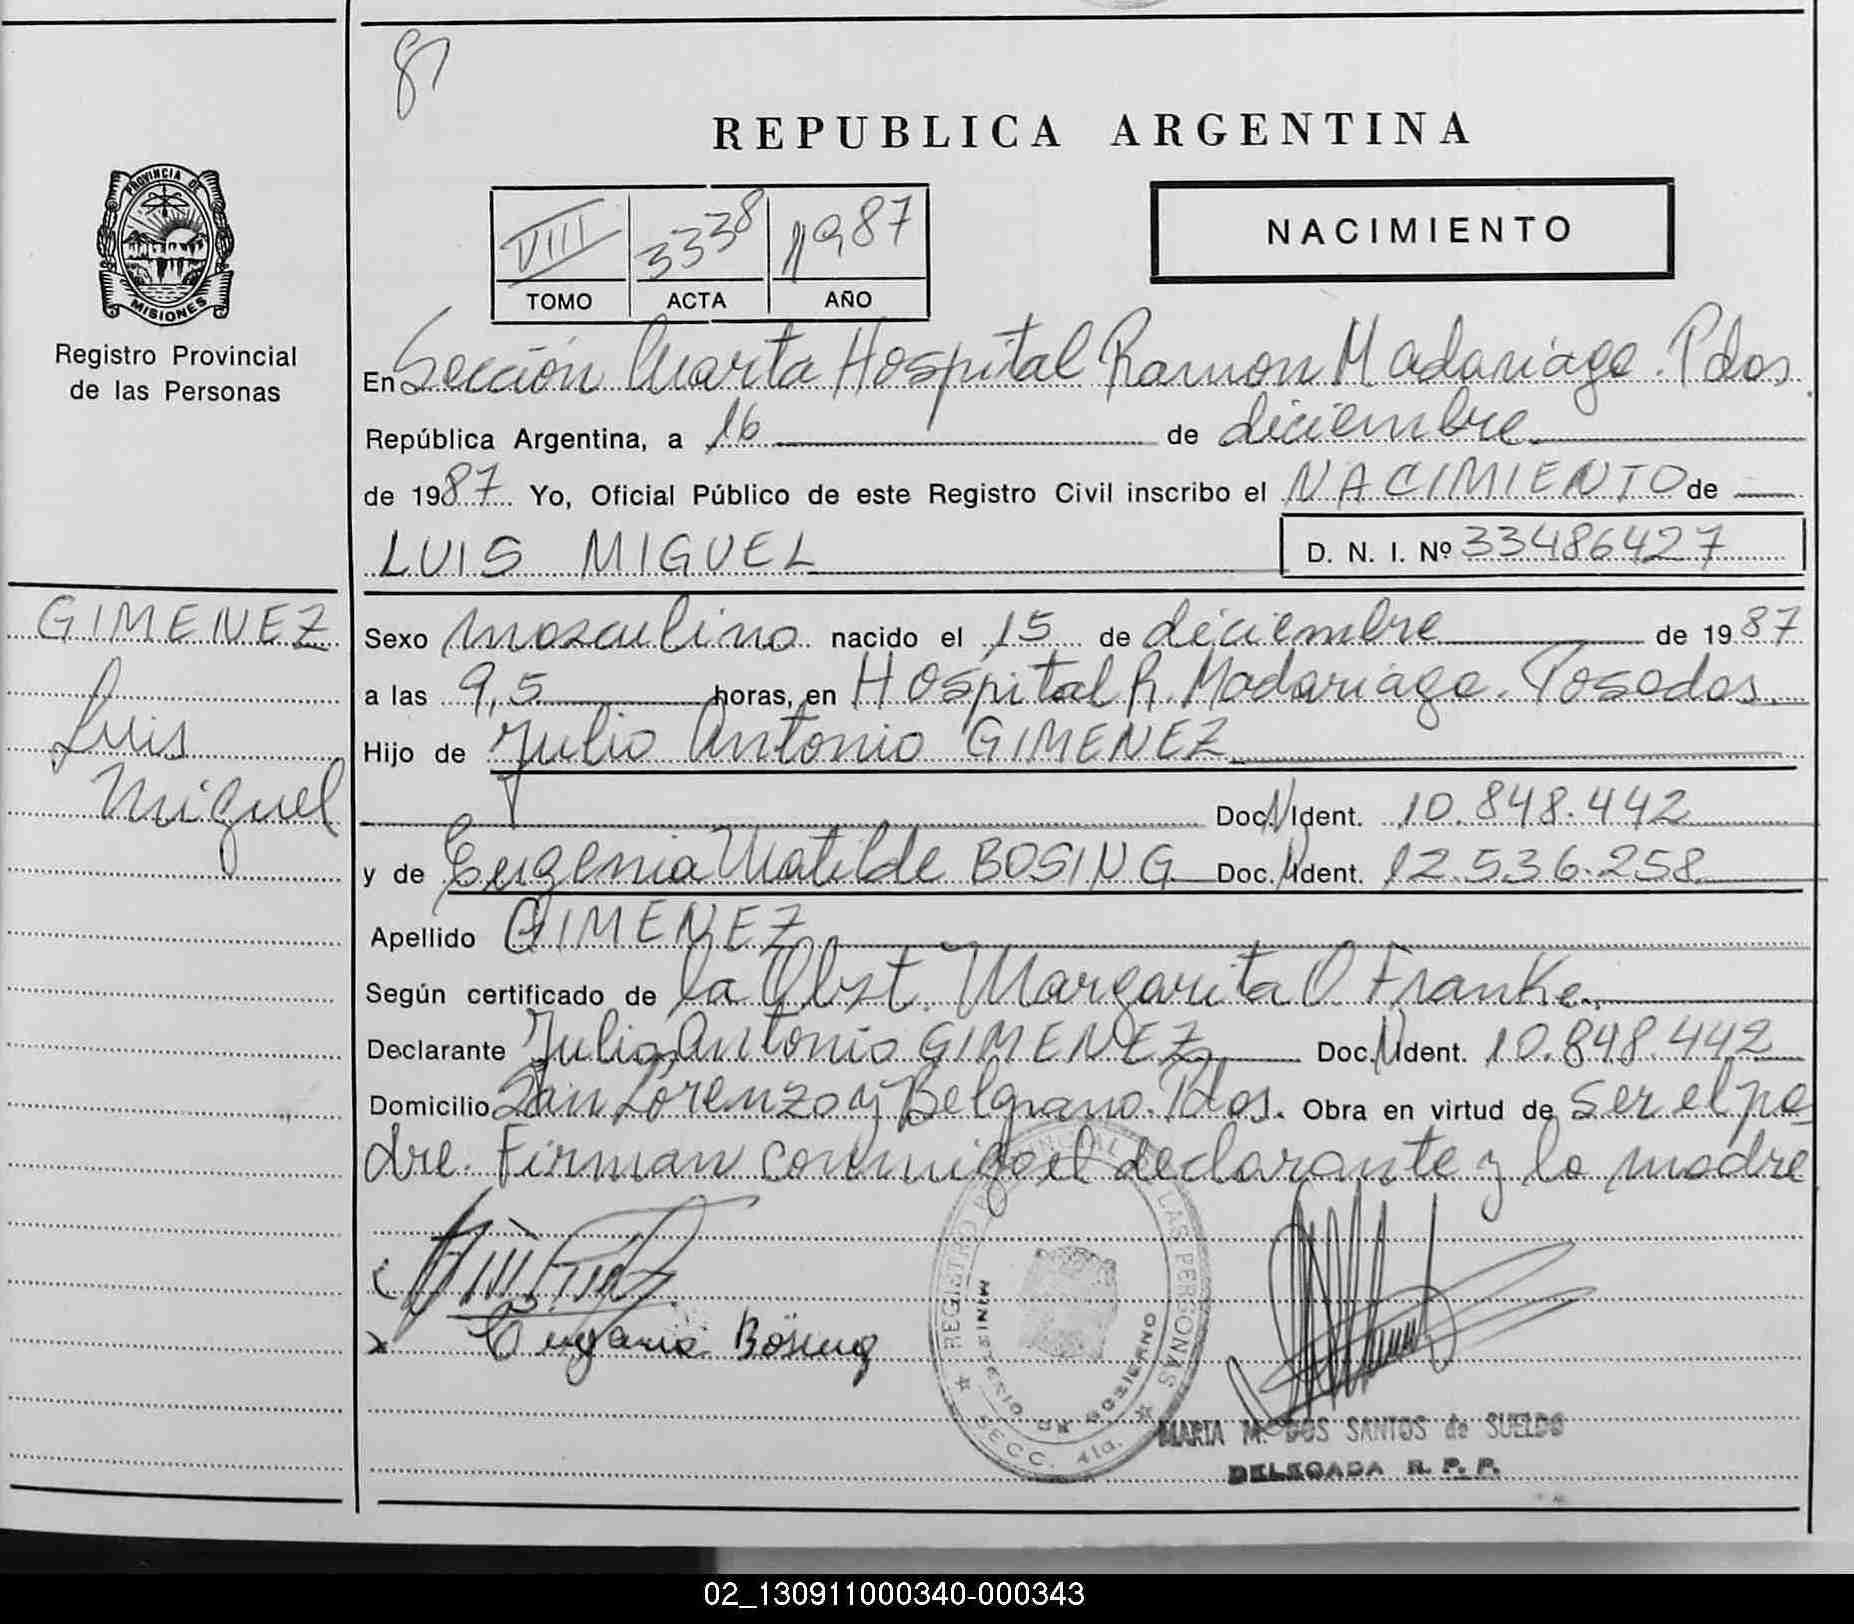 87
REPUBLICA ARGENTINA
PROVINCIA DE
MISIONES
Registro Provincial
de las Personas
VIII 3338 1987
TOMO ACTA AÑO
NACIMIENTO
En Sección Cuarta Hospital Ramon Madariaga. Pdas.
República Argentina, a 16 de diciembre
de 1987 Yo, Oficial Público de este Registro Civil inscribo el NACIMIENTO de
LUIS MIGUEL D. N. I. Nº 33486427
GIMENEZ
Luis
Miguel
Sexo masculino nacido el 15 de diciembre de 1987
a las 9,5 horas, en Hospital R. Madariaga. Posadas.
Hijo de Julio Antonio GIMENEZ
Doc.N.Ident. 10.848.442
y de Eugenia Matilde BOSING Doc.N.Ident. 12.536.258
Apellido GIMENEZ
Según certificado de la Obst. Margarita O Franke.
Declarante Julio Antonio GIMENEZ Doc.N.Ident. 10.848.442
Domicilio San Lorenzo y Belgrano. Pdas. Obra en virtud de ser el pa
dre. Firman conmigo el declarante y la madre
x Eugenia Bösing
REGISTRO PROVINCIAL DE LAS PERSONAS
MINISTERIO DE GOBIERNO
SECC. 4ta.
MARIA M. DOS SANTOS de SUELDO
DELEGADA R. P. P.
02_130911000340-000343